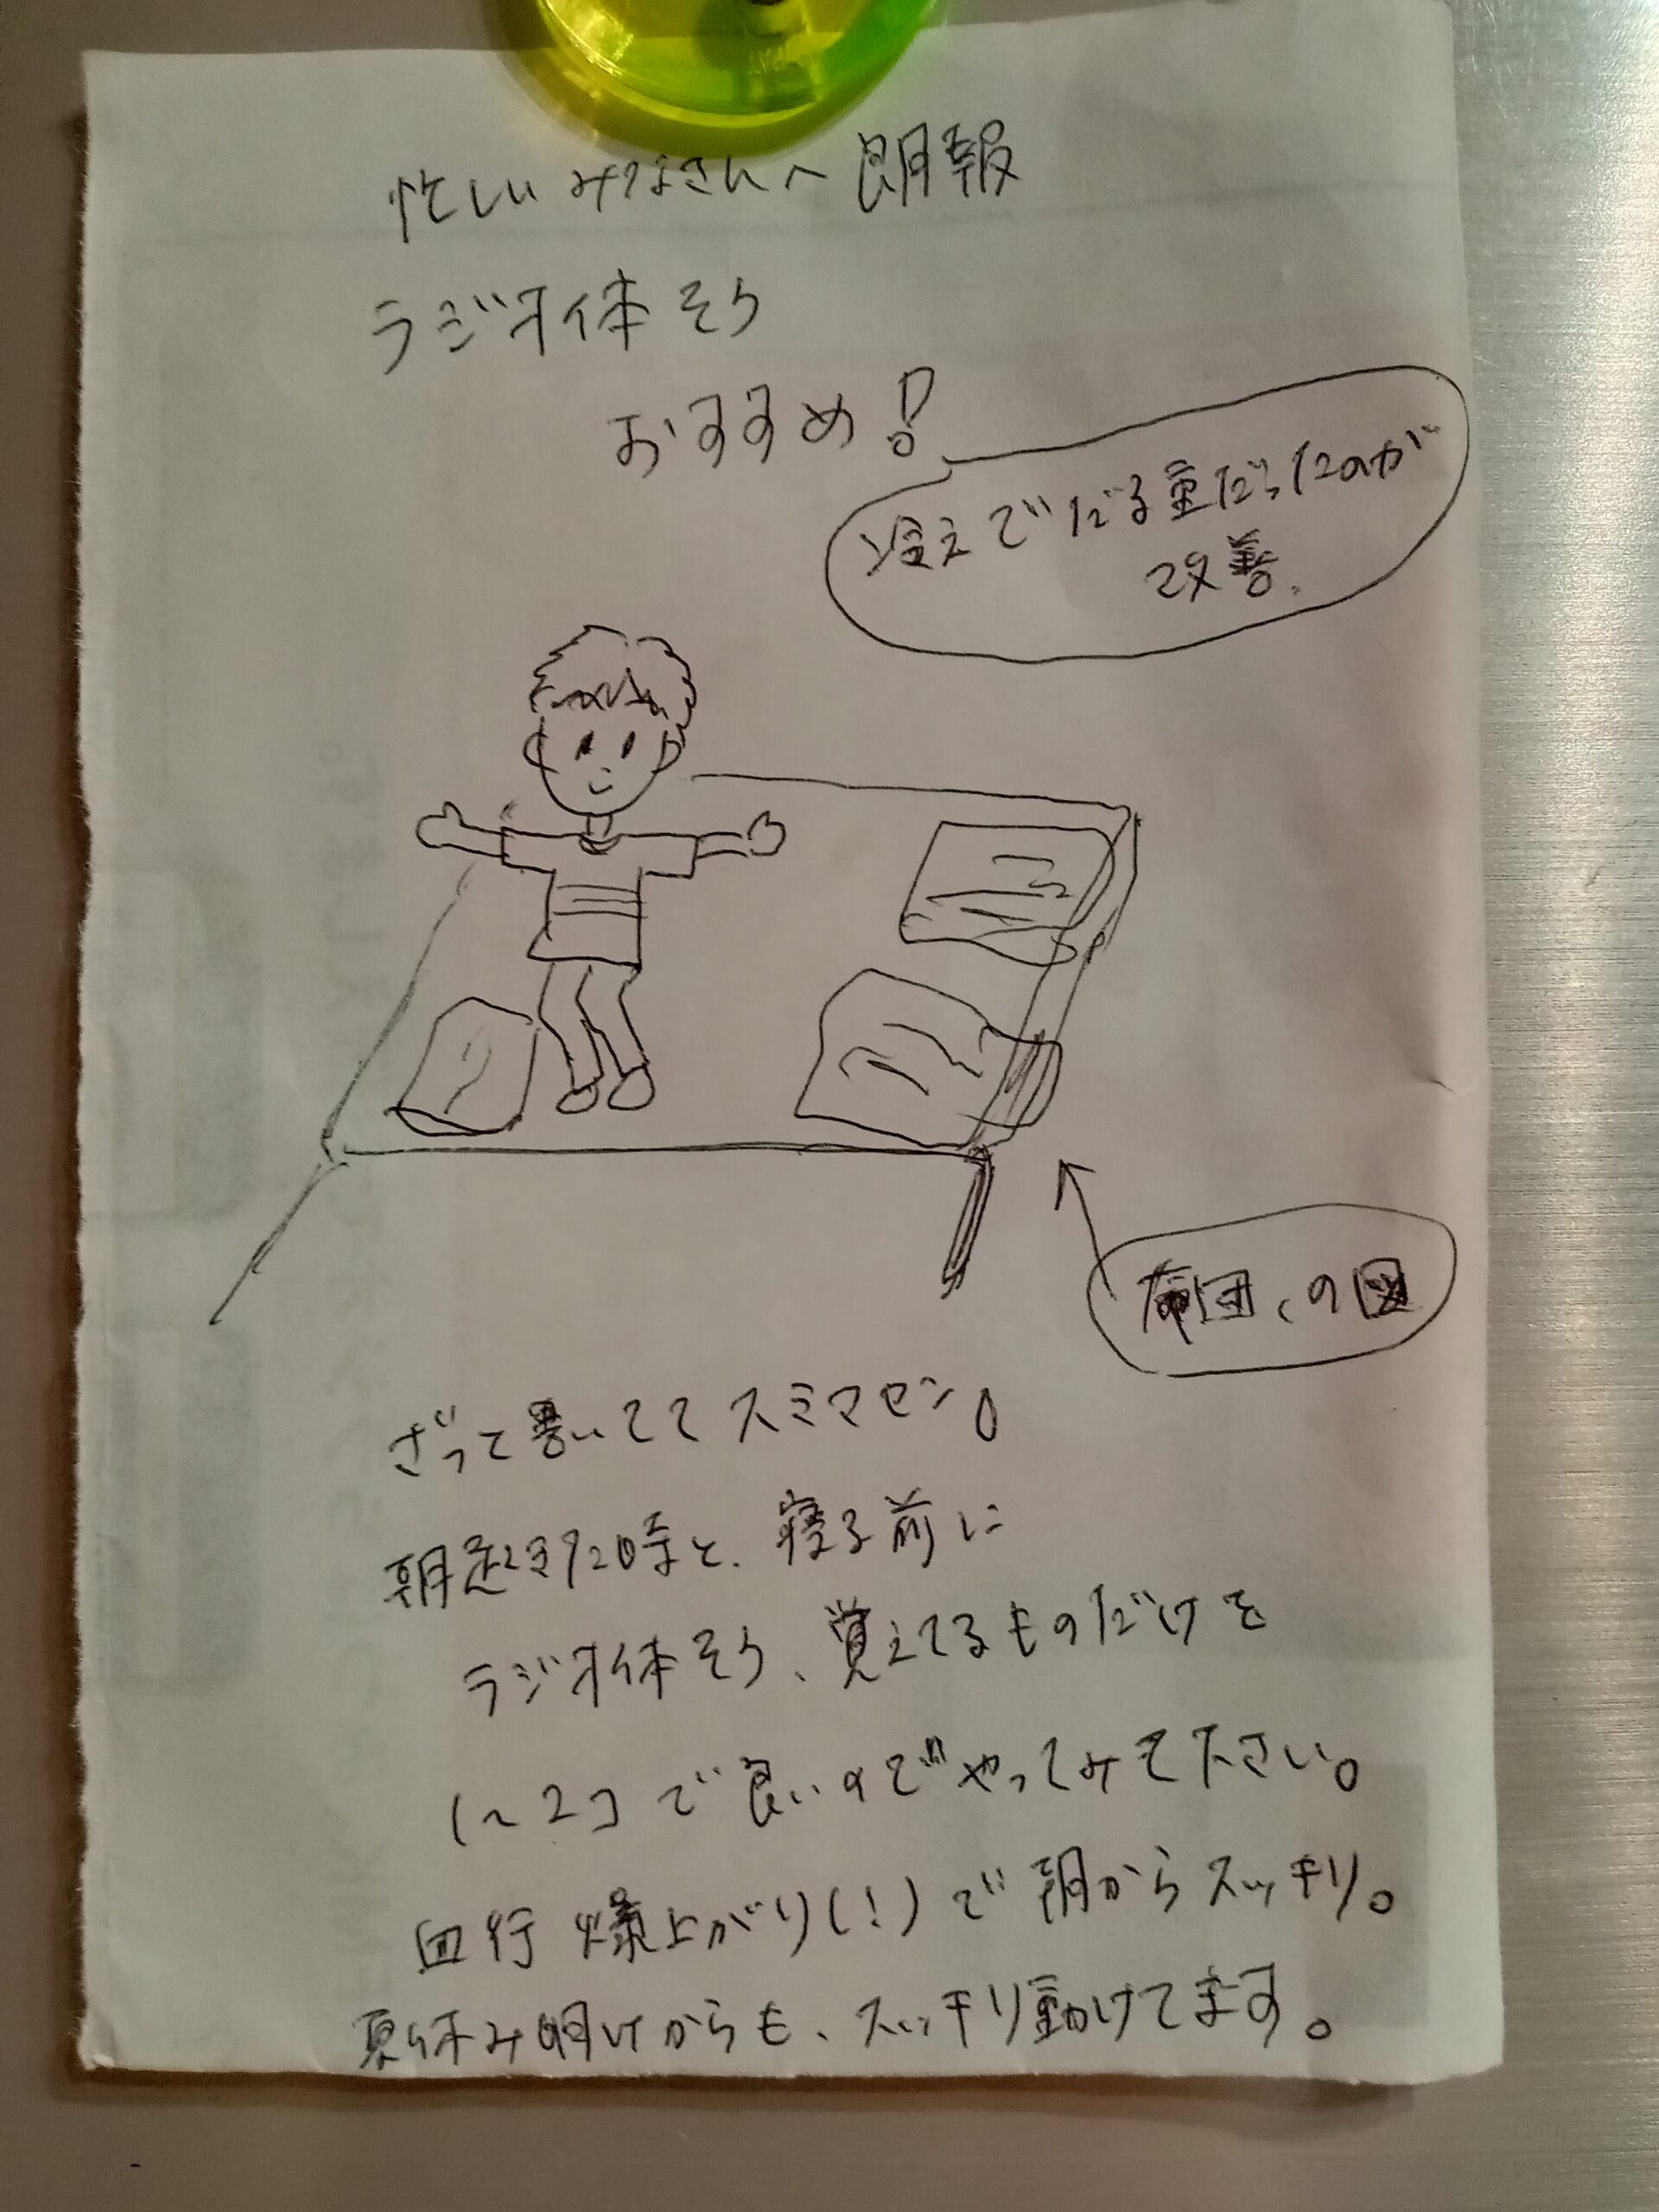 忙しいみなさんへ朗報
ラジオ体そう
おすすめ!
冷えでだる重だったのが
改善.
布団、の図
ざっと書いてて スミマセン。
朝起きた時と、寝る前に
ラジオ体そう、覚えてるものだけを
1~2コで良いのでやってみて下さい。
血行 爆上がり(!)で 朝からスッキリ。
夏休み明けからも、スッキリ動けてます。